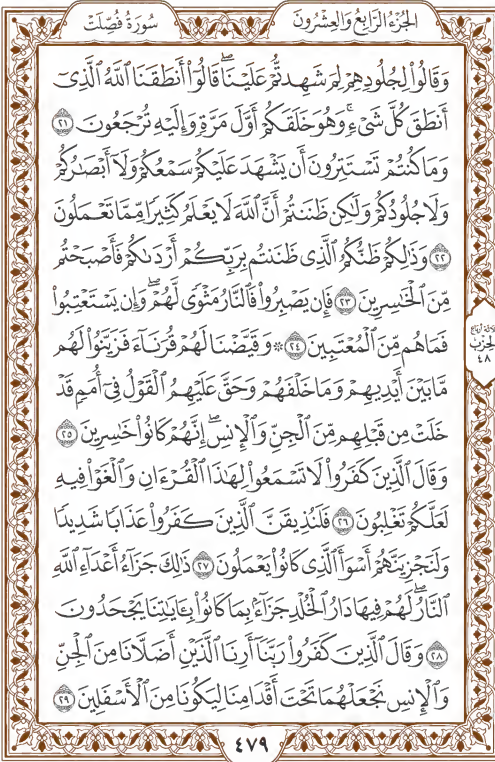 سُورَةُ فُصِّلَتْ
الجُزْءُ الرَّابِعُ وَالعِشْرُونَ
وَقَالُوا۟ لِجُلُودِهِمْ لِمَ شَهِدتُّمْ عَلَيْنَا ۖ قَالُوٓا۟ أَنطَقَنَا ٱللَّهُ ٱلَّذِىٓ
أَنطَقَ كُلَّ شَىْءٍۢ وَهُوَ خَلَقَكُمْ أَوَّلَ مَرَّةٍۢ وَإِلَيْهِ تُرْجَعُونَ ٢١
وَمَا كُنتُمْ تَسْتَتِرُونَ أَن يَشْهَدَ عَلَيْكُمْ سَمْعُكُمْ وَلَآ أَبْصَـٰرُكُمْ
وَلَا جُلُودُكُمْ وَلَـٰكِن ظَنَنتُمْ أَنَّ ٱللَّهَ لَا يَعْلَمُ كَثِيرًۭا مِّمَّا تَعْمَلُونَ
٢٢ وَذَٰلِكُمْ ظَنُّكُمُ ٱلَّذِى ظَنَنتُم بِرَبِّكُمْ أَرْدَىٰكُمْ فَأَصْبَحْتُم
مِّنَ ٱلْخَـٰسِرِينَ ٢٣ فَإِن يَصْبِرُوا۟ فَٱلنَّارُ مَثْوًۭى لَّهُمْ ۖ وَإِن يَسْتَعْتِبُوا۟
فَمَا هُم مِّنَ ٱلْمُعْتَبِينَ ٢٤ ۞ وَقَيَّضْنَا لَهُمْ قُرَنَآءَ فَزَيَّنُوا۟ لَهُم
مَّا بَيْنَ أَيْدِيهِمْ وَمَا خَلْفَهُمْ وَحَقَّ عَلَيْهِمُ ٱلْقَوْلُ فِىٓ أُمَمٍۢ قَدْ
خَلَتْ مِن قَبْلِهِم مِّنَ ٱلْجِنِّ وَٱلْإِنسِ ۖ إِنَّهُمْ كَانُوا۟ خَـٰسِرِينَ ٢٥
وَقَالَ ٱلَّذِينَ كَفَرُوا۟ لَا تَسْمَعُوا۟ لِهَـٰذَا ٱلْقُرْءَانِ وَٱلْغَوْا۟ فِيهِ
لَعَلَّكُمْ تَغْلِبُونَ ٢٦ فَلَنُذِيقَنَّ ٱلَّذِينَ كَفَرُوا۟ عَذَابًۭا شَدِيدًۭا
وَلَنَجْزِيَنَّهُمْ أَسْوَأَ ٱلَّذِى كَانُوا۟ يَعْمَلُونَ ٢٧ ذَٰلِكَ جَزَآءُ أَعْدَآءِ ٱللَّهِ
ٱلنَّارُ ۖ لَهُمْ فِيهَا دَارُ ٱلْخُلْدِ ۖ جَزَآءًۢ بِمَا كَانُوا۟ بِـَٔايَـٰتِنَا يَجْحَدُونَ
٢٨ وَقَالَ ٱلَّذِينَ كَفَرُوا۟ رَبَّنَآ أَرِنَا ٱلَّذَيْنِ أَضَلَّانَا مِنَ ٱلْجِنِّ
وَٱلْإِنسِ نَجْعَلْهُمَا تَحْتَ أَقْدَامِنَا لِيَكُونَا مِنَ ٱلْأَسْفَلِينَ ٢٩
الحِزْب
٤٨
٤٧٩